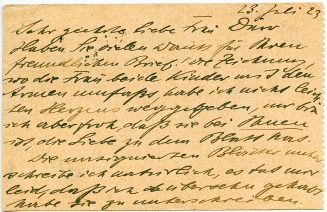 23. Juli 23
Sehr geehrte liebe Frau Durr
Haben Sie vielen Dank für Ihren
freundlichen Brief. die Zeichnung
wo die Frau beide Kinder mit den
Armen umfaßt habe ich nicht leich-
ten Herzens weggegeben, nur bin
ich aber froh, daß sie bei Ihnen
ist die Liebe zu dem Blatt hat.
Die unsignierten Blätter unter
schreibe ich natürlich, es tut mir
leid, daß ich übersehn gehabt
habe sie zu unterschreiben.